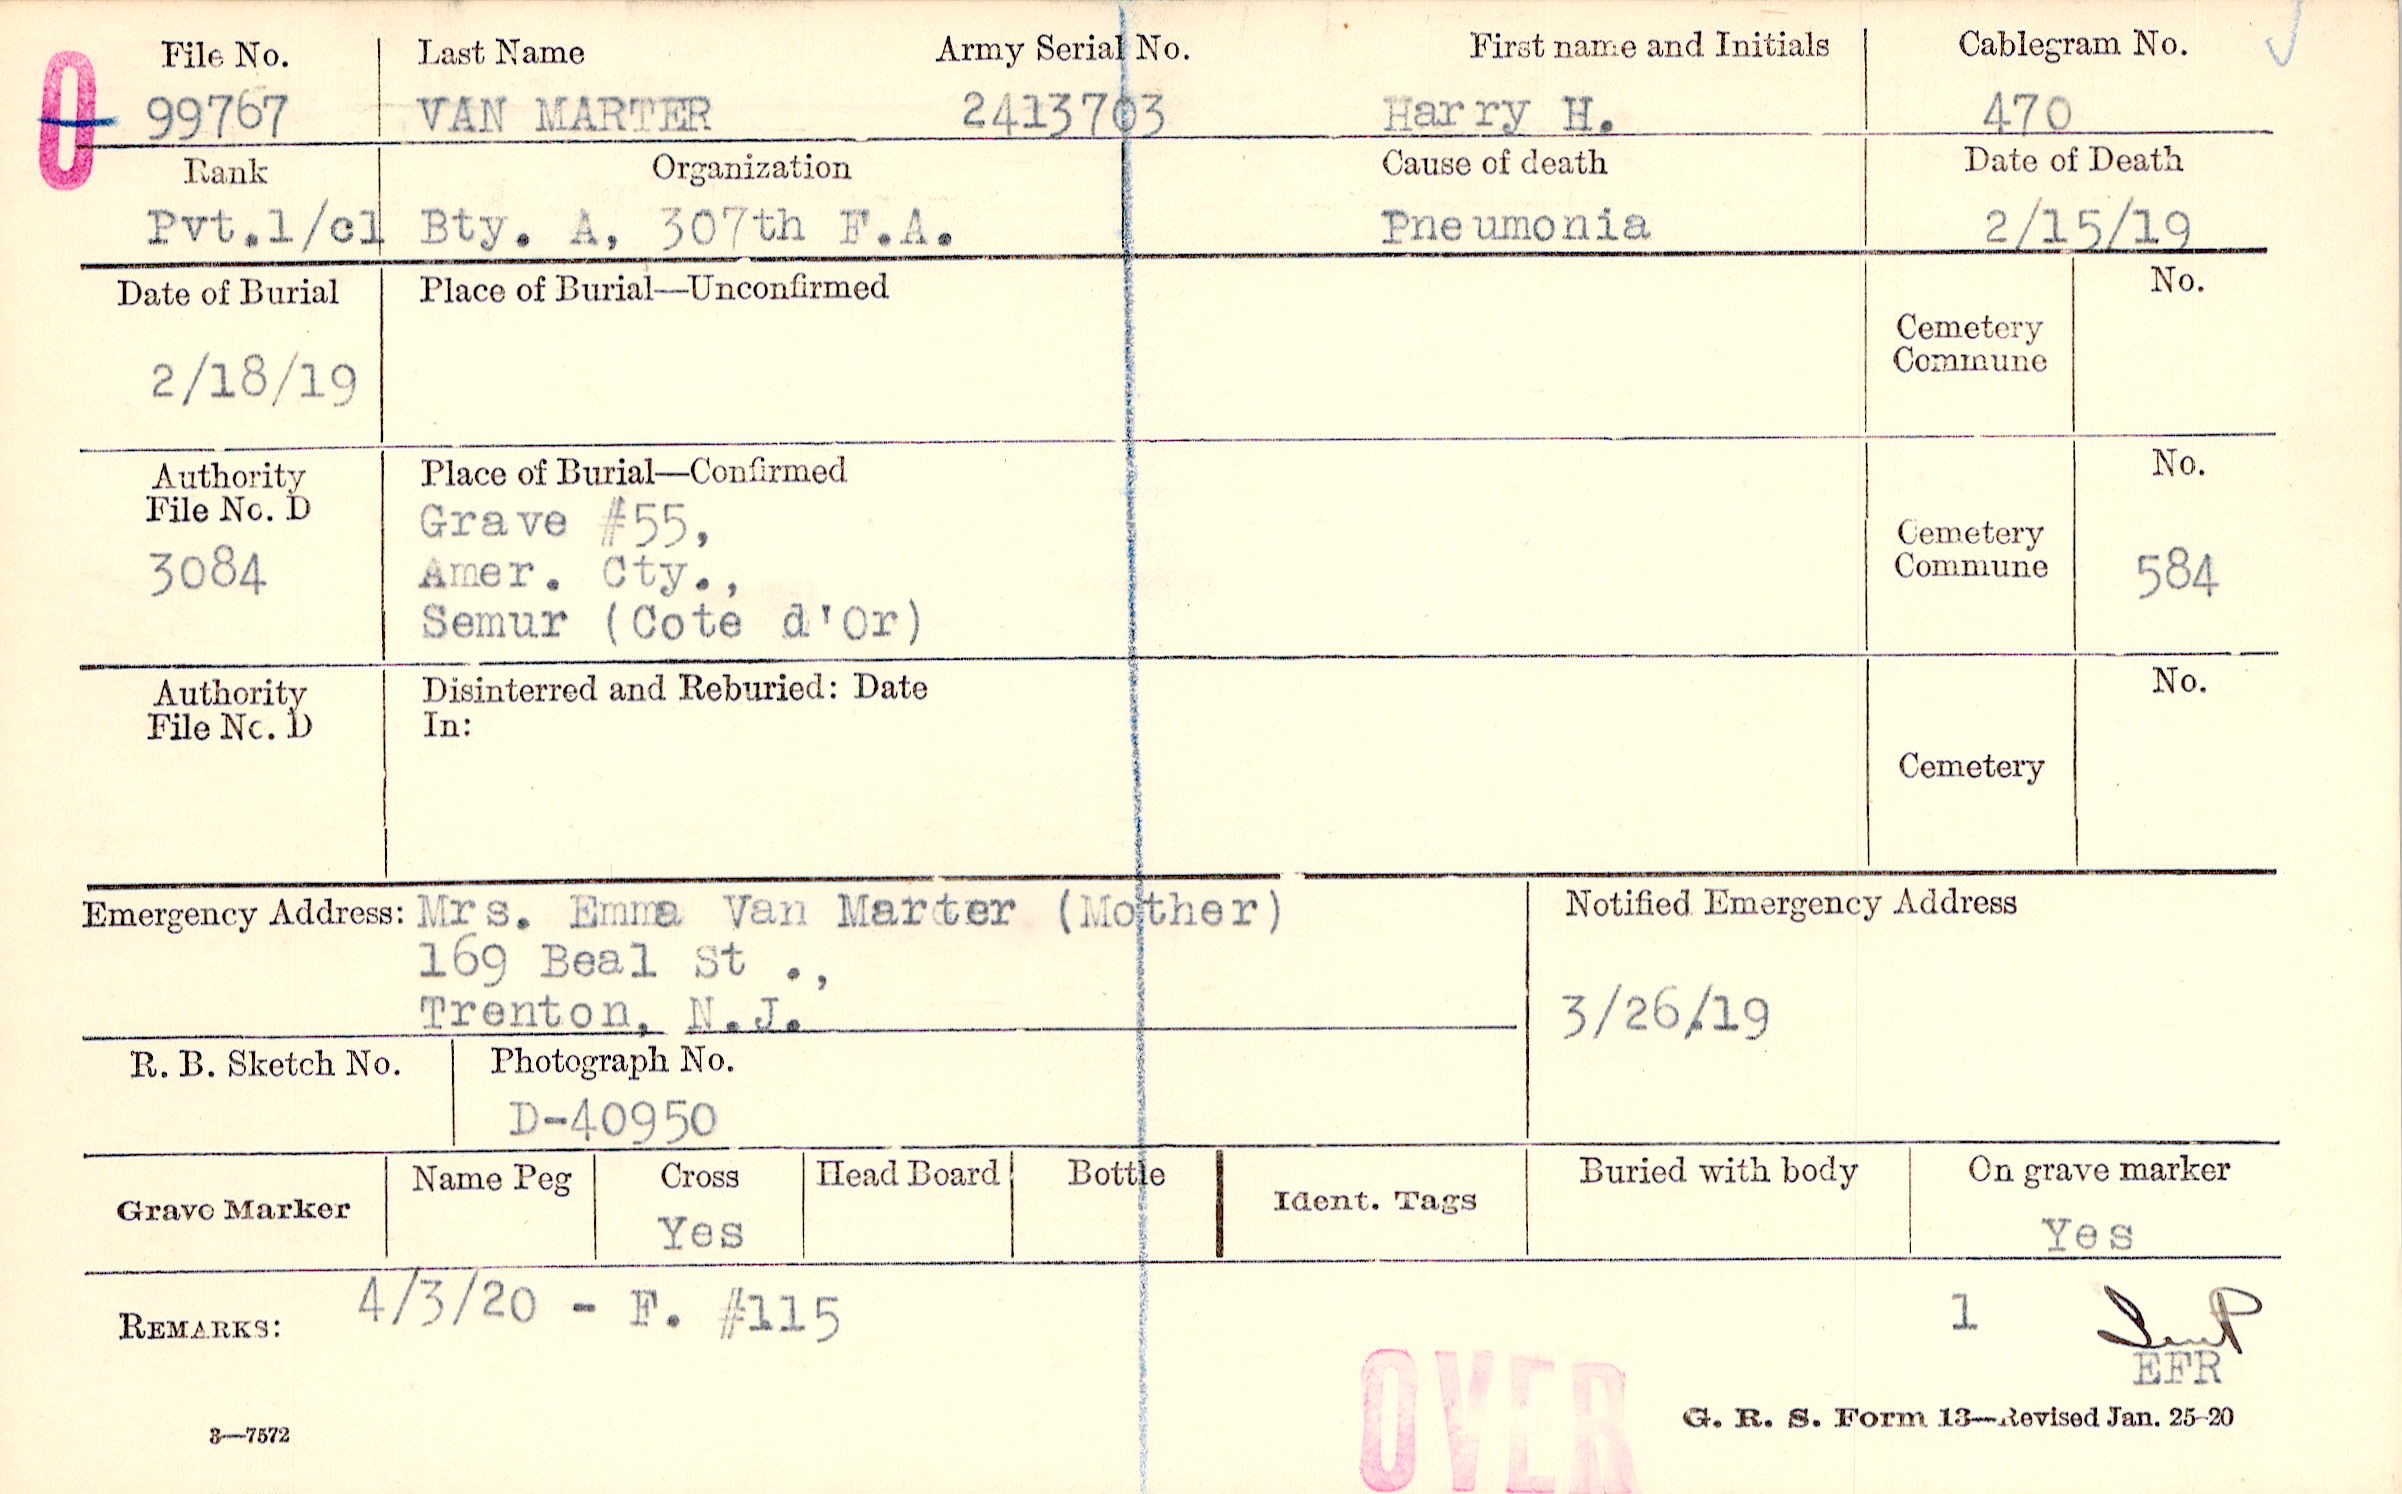 File No. Last Name Army Serial No. First name and Initials Cablegram No.
0 99767 VAN MARTER 2413703 Harry H. 470
Rank Organization Cause of death Date of Death
Pvt.1/cl Bty. A, 307th F.A. Pneumonia 2/15/19
Date of Burial Place of Burial—Unconfirmed No.
Cemetery
Commune
2/18/19
Authority Place of Burial—Confirmed No.
File No. D
Grave #55,
3084 Amer. Cty., Cemetery
Commune 584
Semur (Cote d'Or)
Authority Disinterred and Reburied: Date No.
File No. D In:
Cemetery
Emergency Address: Mrs. Emma Van Marter (Mother) Notified Emergency Address
169 Beal St .,
Trenton, N.J. 3/26/19
R. B. Sketch No. Photograph No.
D-40950
Grave Marker Name Peg Cross Head Board Bottle Ident. Tags Buried with body On grave marker
Yes Yes
REMARKS: 4/3/20 - F. #115 1
EFR
OVER
3—7572 G. R. S. Form 13—Revised Jan. 25-20